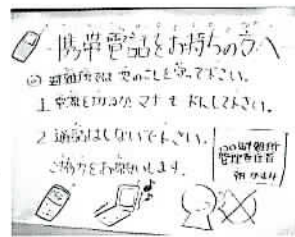 携帯電話をお持ちの方へ
◎避難所では次のことを守って下さい。
1.電源を切るか、マナーモードにして下さい。
2.通話はしないで下さい。
ご協力をお願いします。
避難所
管理責任者